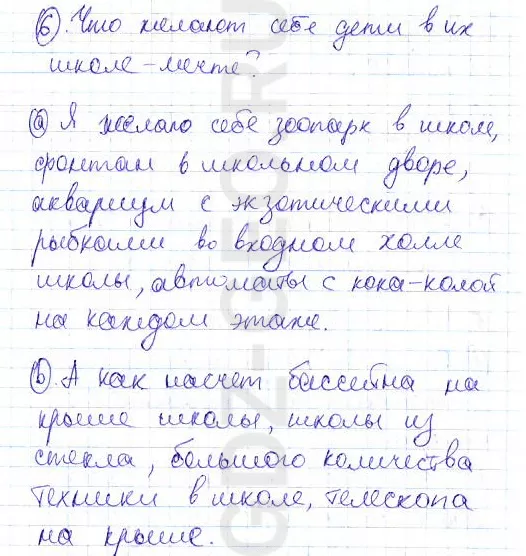 6. Что желают себе дети в их
школе-мечте?
a) Я желаю себе зоопарк в школе,
фонтан в школьном дворе,
аквариум с экзотическими
рыбками во входном холле
школы, автоматы с кока-колой
на каждом этаже.
b). А как насчет бассейна на
крыше школы, школы из
стекла, большого количества
техники в школе, телескопа
на крыше.
GDZ-GEO.RU